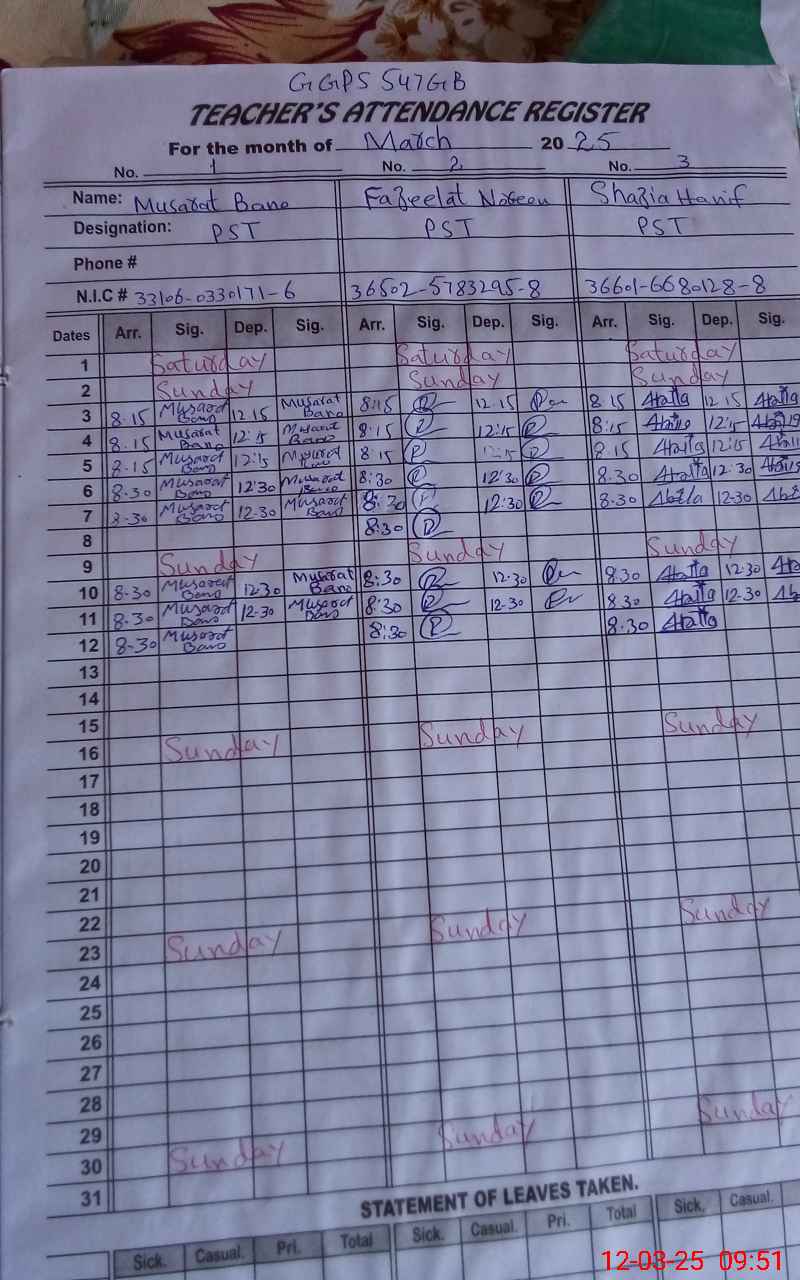 GGPS 547GB
TEACHER'S ATTENDANCE REGISTER
For the month of March 2025
No. 1 No. 2 No. 3
Name: Musarat Bano Fazeelat Noreen Shazia Hanif
Designation: PST PST PST
Phone #
N.I.C # 33106-0330171-6 36502-5783295-8 36601-6680128-8
Dates Arr. Sig. Dep. Sig. Arr. Sig. Dep. Sig. Arr. Sig. Dep. Sig.
1 Saturday Saturday Saturday
2 Sunday Sunday Sunday
3 8.15 Musarat Bano 12.15 Musarat Bano 8:15 12.15 8.15 12.15
4 8.15 Musarat Bano 12:15 Musarat Bano 8:15 12:15 8:15 12:15
5 8.15 Musarat Bano 12:15 Musarat Bano 8:15 12:15 8.15 12:15
6 8.30 Musarat Bano 12:30 Musarat Bano 8:30 12:30 8.30 12:30
7 8-30 Musarat Bano 12-30 Musarat Bano 8:30 12:30 8:30 12-30
8 8:30
9 Sunday Sunday Sunday
10 8-30 Musarat Bano 12-30 Musarat Bano 8:30 12.30 8.30 12.30
11 8-30 Musarat Bano 12-30 Musarat Bano 8:30 12-30 8.30 12-30
12 8-30 Musarat Bano 8:30 8-30
13
14
15
16 Sunday Sunday Sunday
17
18
19
20
21
22
23 Sunday Sunday Sunday
24
25
26
27
28
29
30 Sunday Sunday Sunday
31
STATEMENT OF LEAVES TAKEN.
Sick. Casual. Pri. Total Sick. Casual. Pri. Total Sick. Casual.
12-03-25 09:51